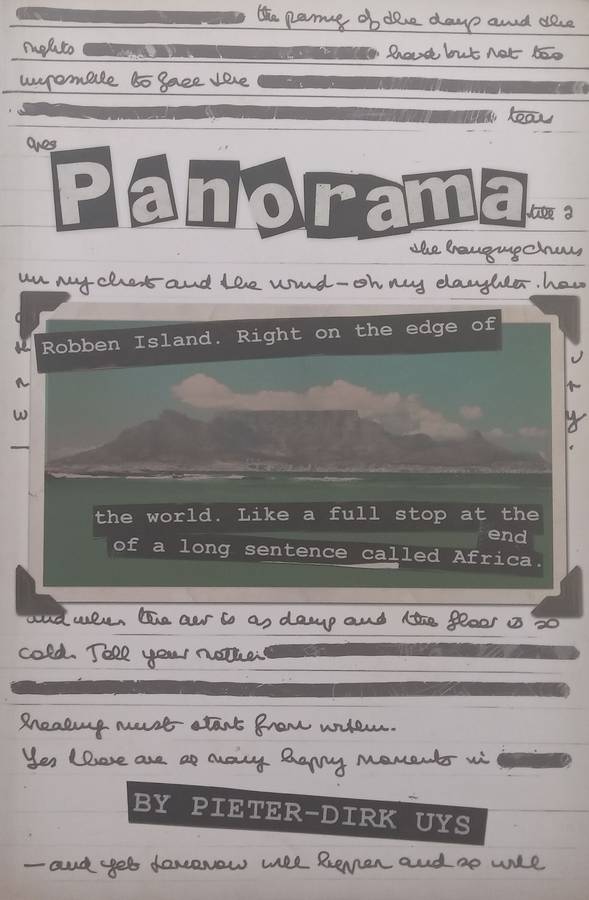 the passing of the days and the
nights hard but not too
impossible to face the
tears
Panorama
the hanging
on my chest and the wind – oh my daughter how
Robben Island. Right on the edge of
the world. Like a full stop at the
end
of a long sentence called Africa.
and when the air is as damp and the floor is so
cold. Tell your mother
healing must start from within.
Yes there are so many happy moments in
BY PIETER-DIRK UYS
– and yet tomorrow will happen and so will